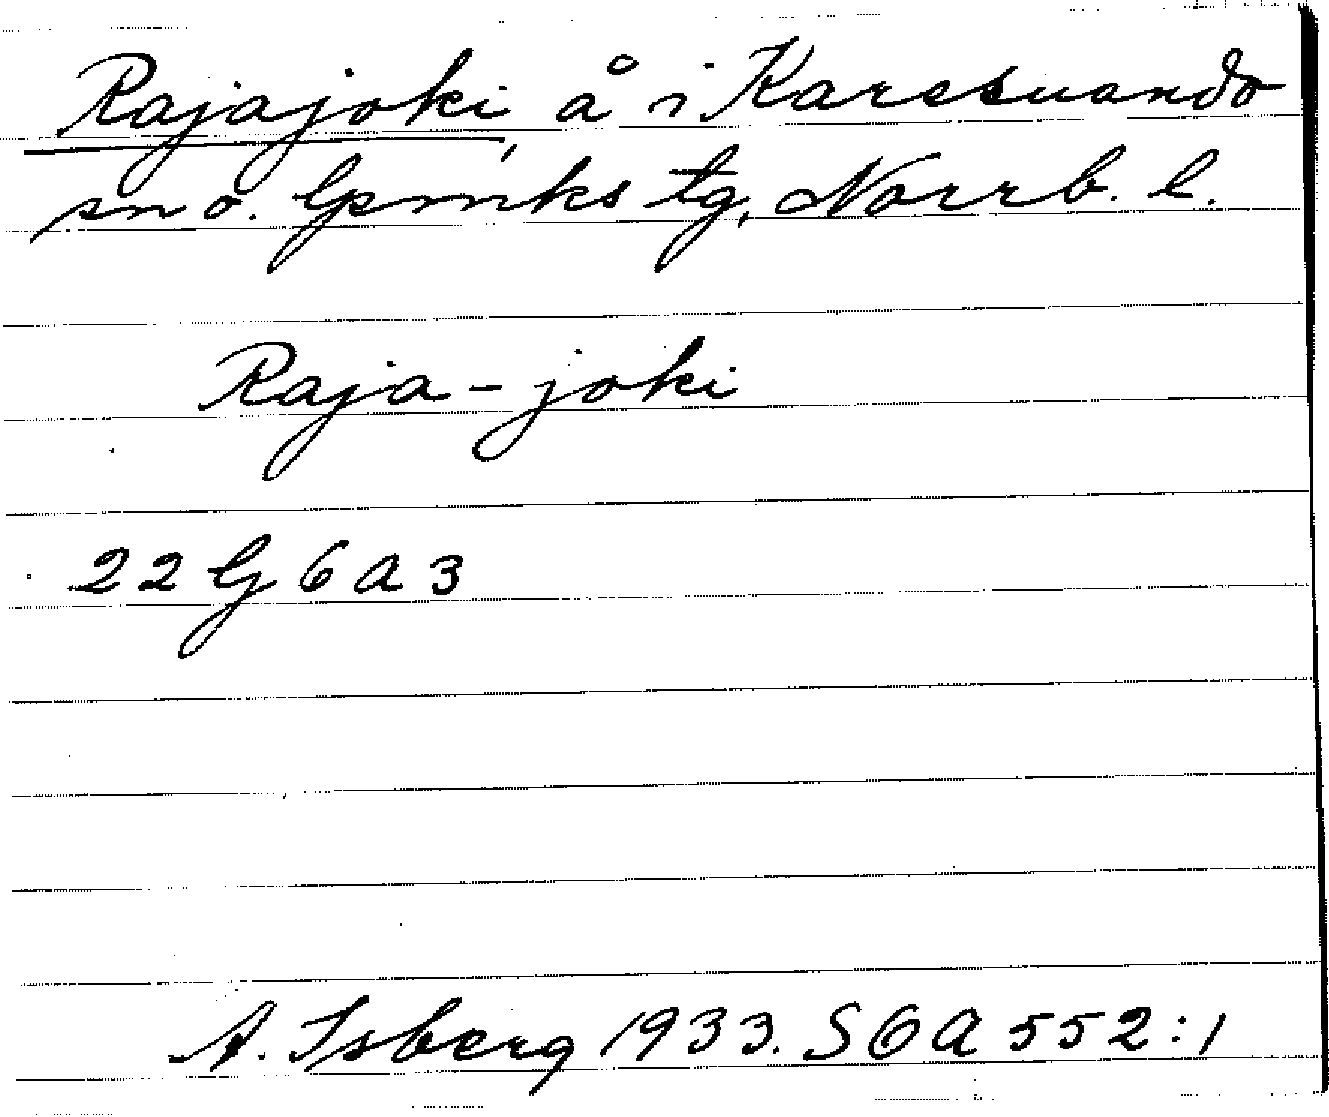 Rajajoki, å i Karesuando
sn o. lpmks tg, Norrb. l.
Raja-joki
22 G 6 a 3
A. Isberg 1933. SOA 552:1